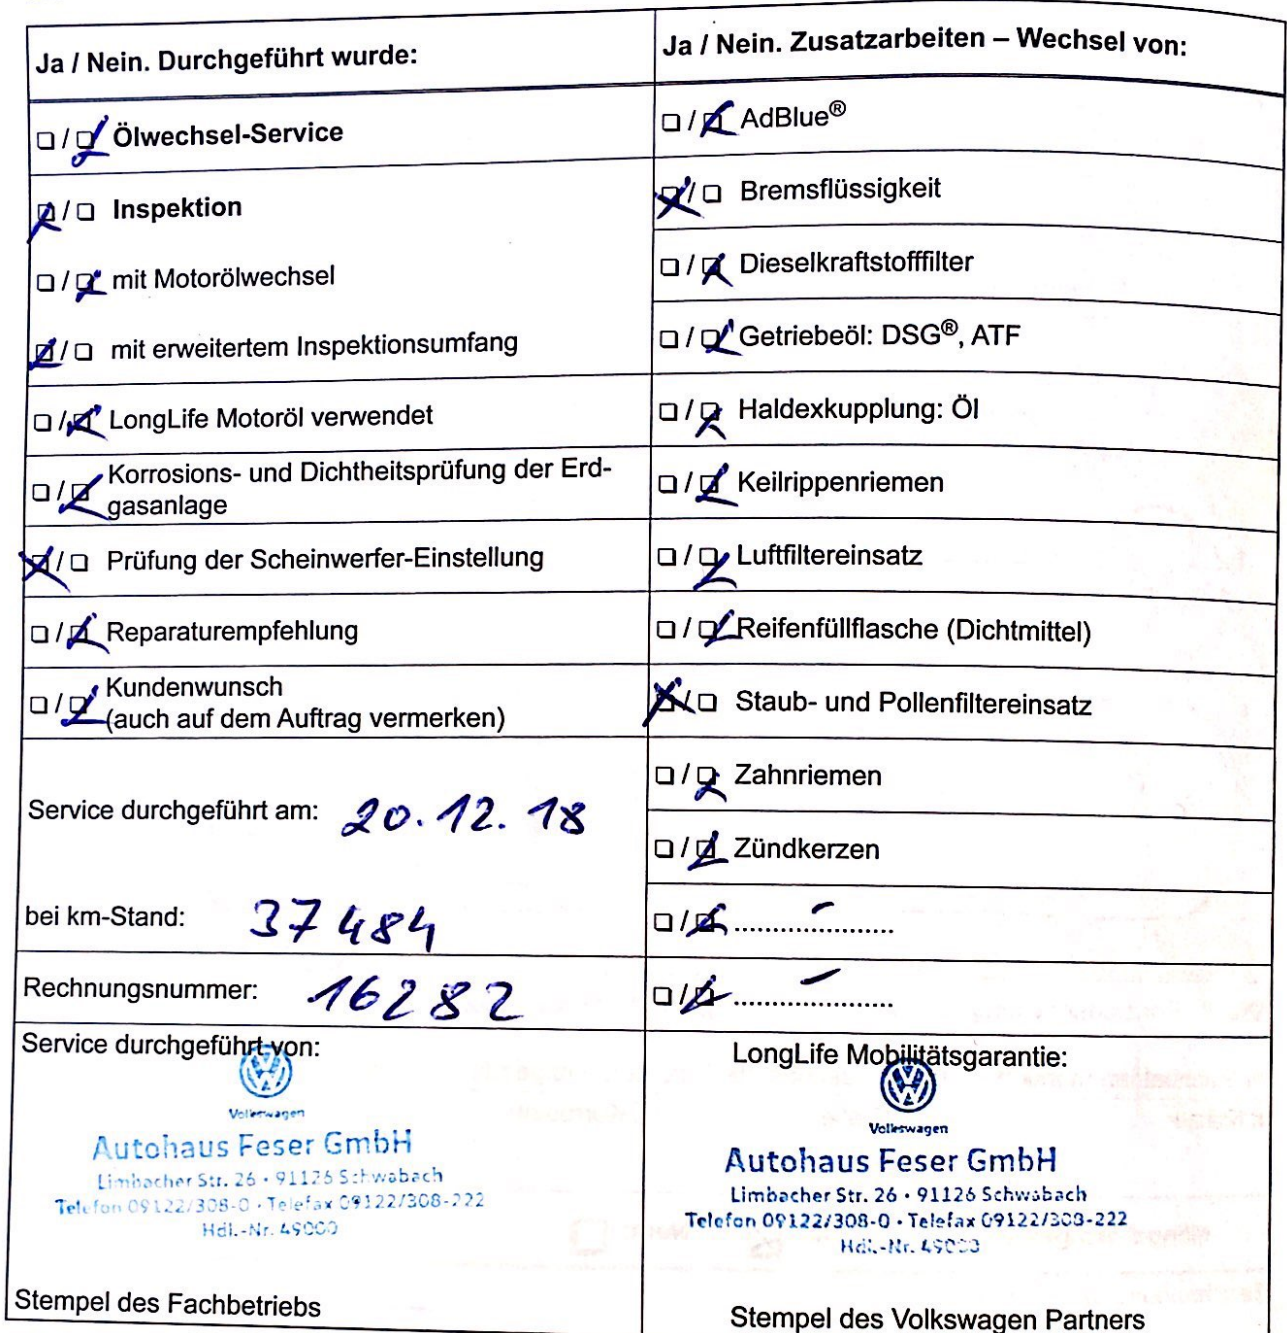 Ja / Nein. Durchgeführt wurde:
☐ / ☒ Ölwechsel-Service
☒ / ☐ Inspektion
☐ / ☒ mit Motorölwechsel
☒ / ☐ mit erweitertem Inspektionsumfang
☐ / ☒ LongLife Motoröl verwendet
☐ / ☒ Korrosions- und Dichtheitsprüfung der Erd-
gasanlage
☒ / ☐ Prüfung der Scheinwerfer-Einstellung
☐ / ☒ Reparaturempfehlung
☐ / ☒ Kundenwunsch
(auch auf dem Auftrag vermerken)
Service durchgeführt am: 20.12.18
bei km-Stand: 37484
Rechnungsnummer: 16282
Service durchgeführt von:
Volkswagen
Autohaus Feser GmbH
Limbacher Str. 26 · 91126 Schwabach
Telefon 09122/308-0 · Telefax 09122/308-222
Hdl.-Nr.
Stempel des Fachbetriebs
Ja / Nein. Zusatzarbeiten – Wechsel von:
☐ / ☒ AdBlue®
☒ / ☐ Bremsflüssigkeit
☐ / ☒ Dieselkraftstofffilter
☐ / ☒ Getriebeöl: DSG®, ATF
☐ / ☒ Haldexkupplung: Öl
☐ / ☒ Keilrippenriemen
☐ / ☒ Luftfiltereinsatz
☐ / ☒ Reifenfüllflasche (Dichtmittel)
☒ / ☐ Staub- und Pollenfiltereinsatz
☐ / ☒ Zahnriemen
☐ / ☒ Zündkerzen
☐ / ☒ ...................... –
☐ / ☒ ...................... –
LongLife Mobilitätsgarantie:
Volkswagen
Autohaus Feser GmbH
Limbacher Str. 26 · 91126 Schwabach
Telefon 09122/308-0 · Telefax 09122/308-222
Hdl.-Nr.
Stempel des Volkswagen Partners